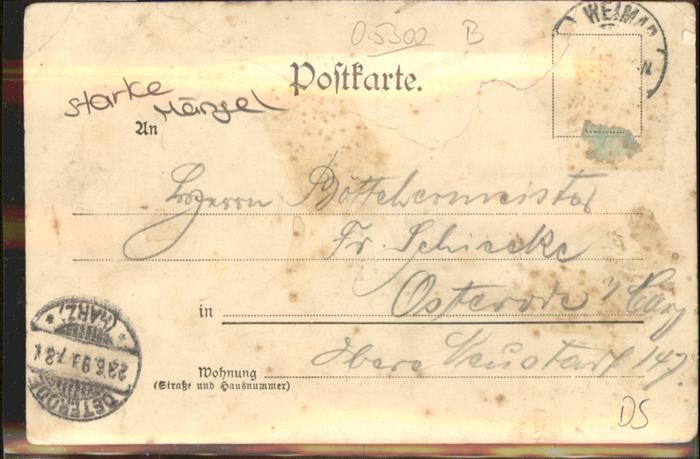 05300 B
WEIMAR
Postkarte.
starke
Mängel
An
Herrn Böttchermeister
Fr. Schiecke
in Osterode a/Harz
Wohnung Obere Neustadt 147.
(Straße und Hausnummer)
OSTERODE
(HARZ)
DS